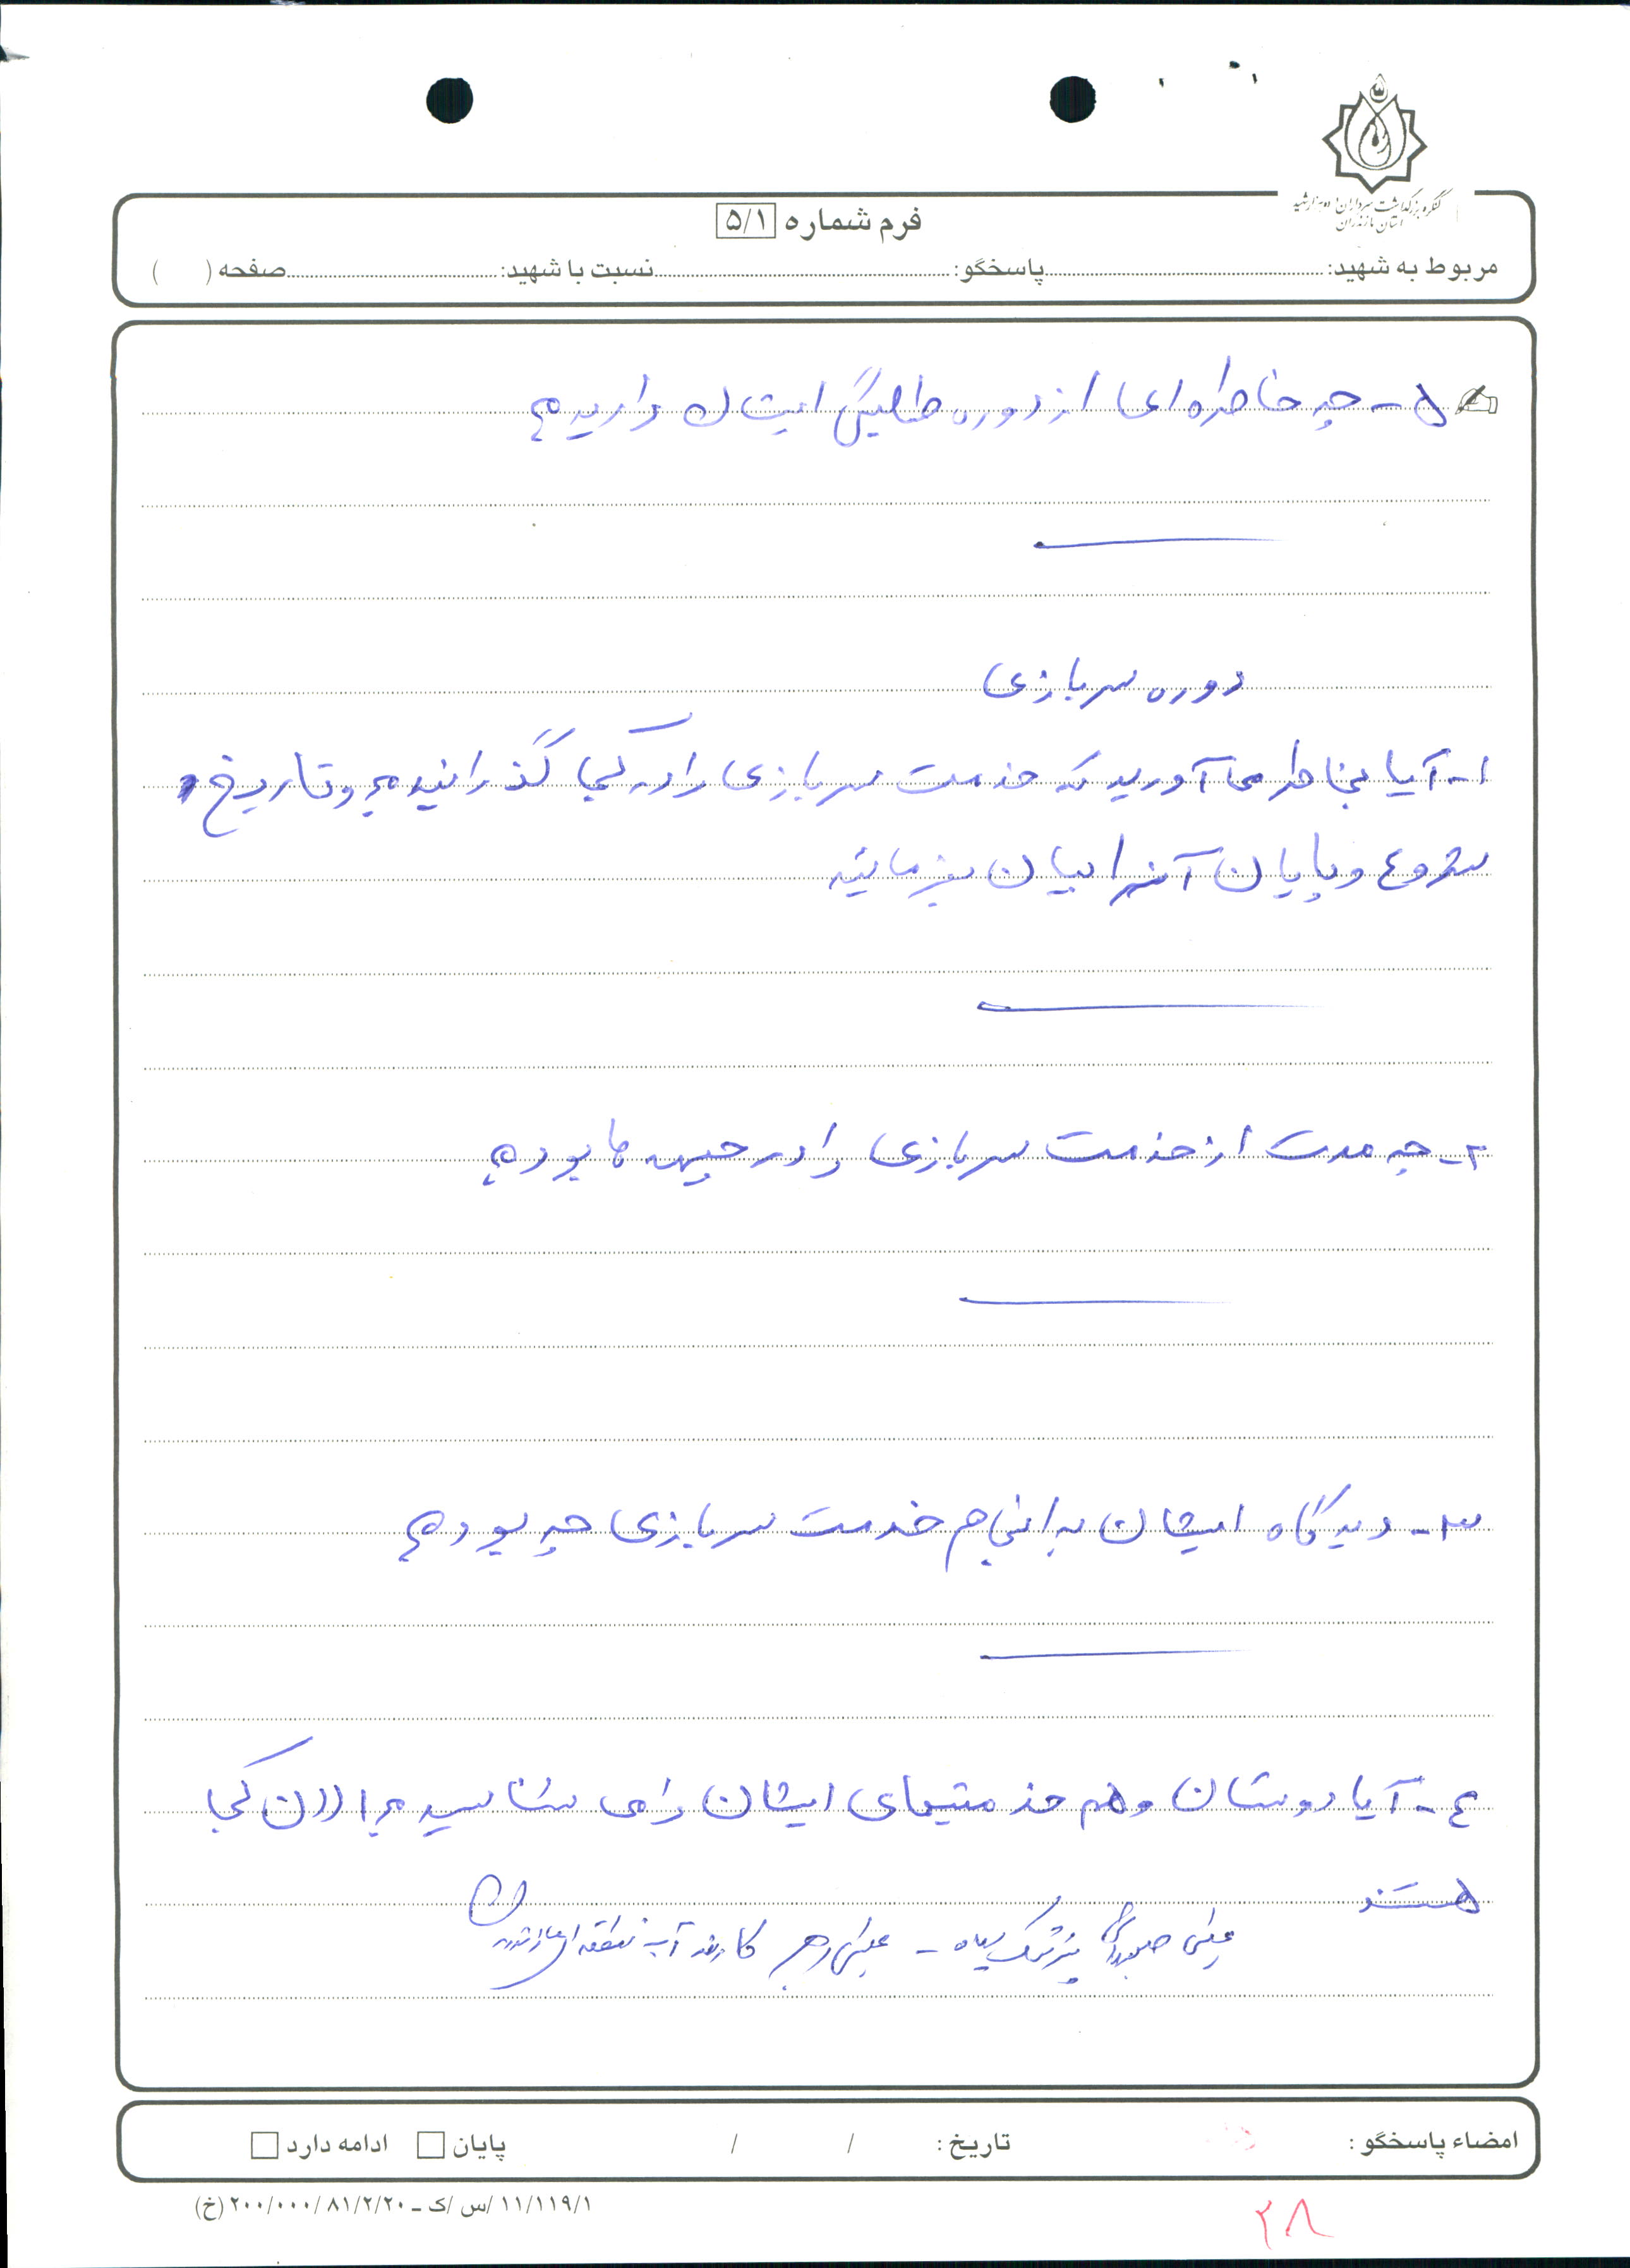 کنگره بزرگداشت سرداران و ده هزار شهید
استان مازندران
فرم شماره ۵/۱
مربوط به شهید: پاسخگو: نسبت با شهید: صفحه ( )
۵- چه خاطره ای از دوره طلبگی ایشان دارید؟
دوره سربازی
۱- آیا بخاطر می آورید که خدمت سربازی را در کجا گذرانید؟ و تاریخ
شروع و پایان آنرا بیان بفرمائید
۲- چه مدت از خدمت سربازی را در جبهه ها بوده؟
۳- دیدگاه ایشان به انجام خدمت سربازی چه بوده؟
۴- آیا دوستان و هم خدمتیهای ایشان را می شناسید؟ الان کجا
هستند
علی پزشک سپاه - علی کارمند آب منطقه ای مازندران
امضاء پاسخگو : تاریخ : / / پایان ادامه دارد
۱۱/۱۱۹/۱ /س /ک - ۸۱/۲/۲۰ /۲۰۰/۰۰۰ (خ)
۲۸